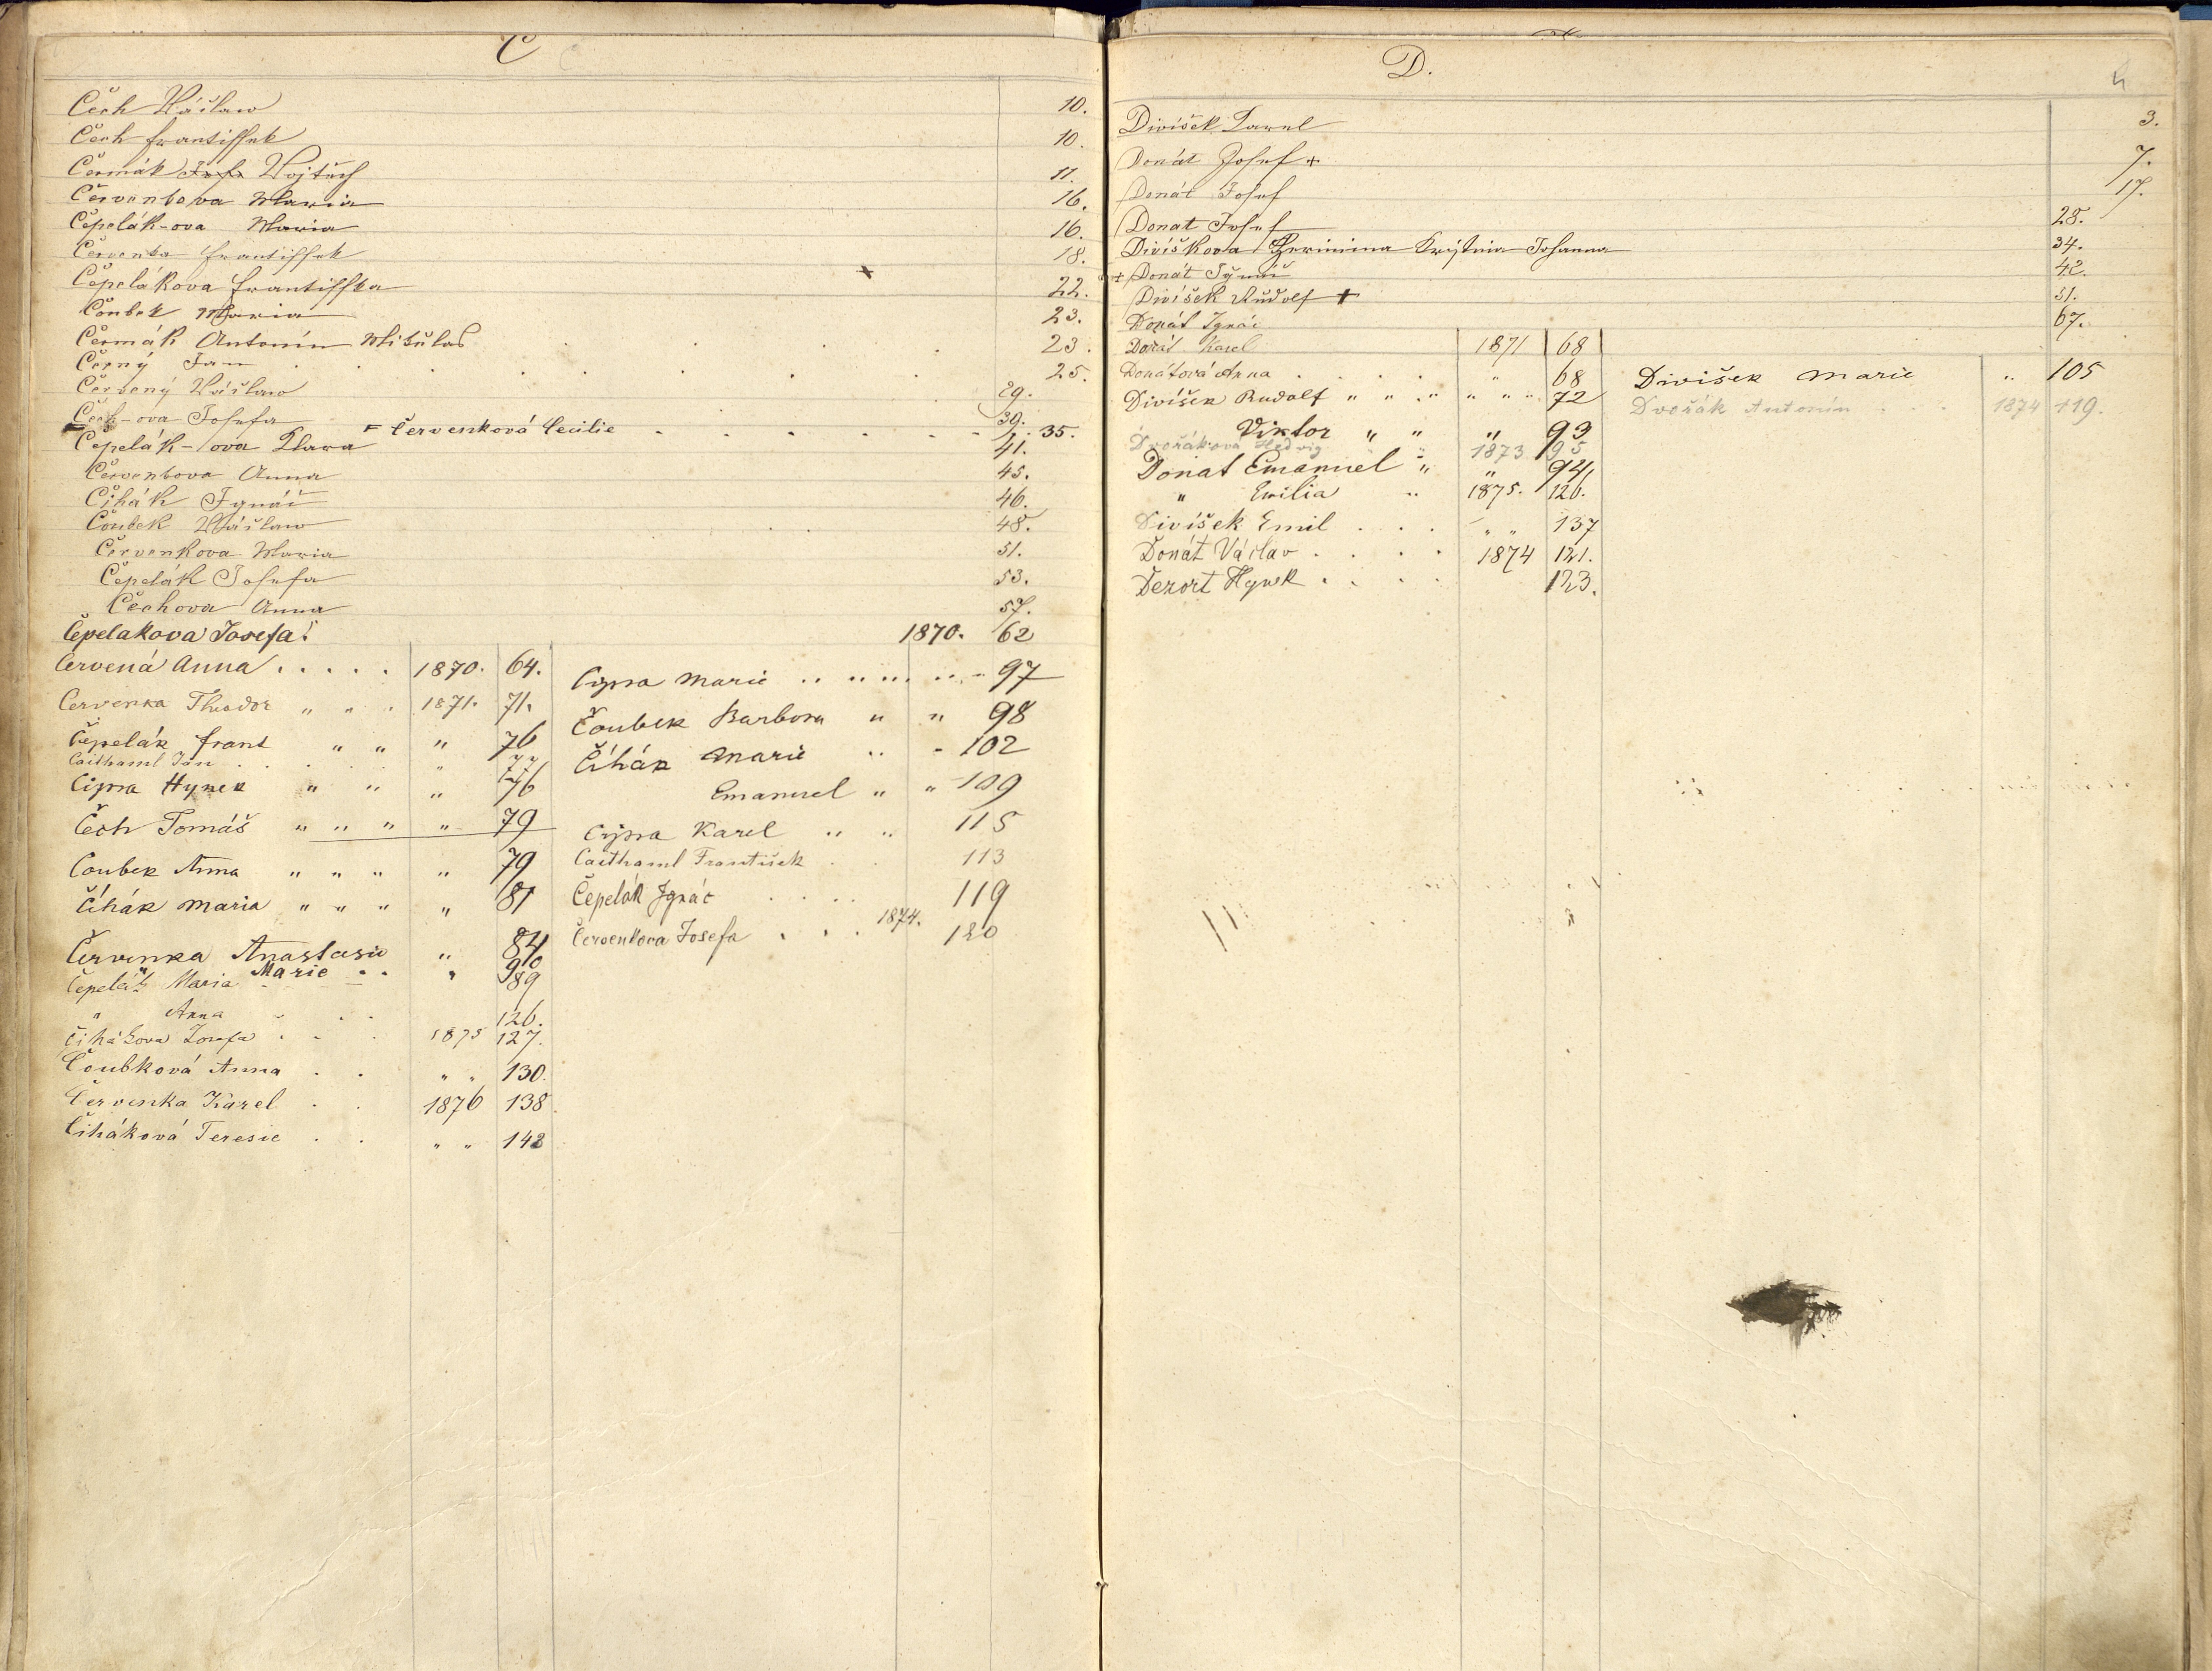 Č
Čech Václaw 10.
Čech Frantiſſek 10.
Čermák Wojtěch 11.
Červenkova Maria 16.
Čepelák-ova Maria 16.
Červenka Frantiſſek 18.
Čepelákova Frantiſſka 22.
Čoubek Maria 23.
Čermák Antonín Mikulaš 23.
Černý Jan 25.
Červený Václaw 29.
Čech-ova Josefa 39.
= Červenková Cecilie 35.
Čepelák-ova Klara 41.
Červenkova Anna 45.
Čihák Ignác 46.
Čoubek Václaw 48.
Červenkova Maria 51.
Čepelák Josefa 53.
Čechova Anna 57.
Čepelakova Josefa 1870. 62
Červená Anna . . . . . 1870. 64.
Červenka Theodor " " . 1871. 71.
Čepelák Frant " " " 76
Caithaml Jan . . . . " 77
Čipra Hynek " " " 76
Čech Tomáš " " " " 79
Čoubek Anna " " " " 79
Čihák Maria " " " " 81
Červenka Anastasie " 84
" Marie . . " 90
Čepelák Maria 89
" Anna . . 126.
Čihákova Josefa . . . 1875 127.
Čoubková Anna . . " " 130.
Červenka Karel . . 1876 138.
Čiháková Teresie . . " " 142
Cypra Marie 97
Čoubek Barbora " " 98
Čihák Marie " " 102
Emanuel " " 109
Cýpra Karel " " 115
Caithaml František . . 113
Čepelák Ignác . . . . 119
Červenkova Josefa . . . 1874. 120
D.
Divíšek Karel 3.
Donát Josef + 7.
Donát Josef 17.
Donat Josef 28.
Divíškova Kristina Johanna 34.
+ Donát Ignác 42.
Divíšek Rudolf + 51.
Donát Ignác 67.
Donát Karel 1871 68
Donátová Anna . . . . " 68
Divíšek Rudolf " " " " " " 72
Viktor " " " 93
Dvořákova Hedvig " 1873 95
Donat Emanuel " " " 94.
" Emilia " 1875. 126.
Divíšek Emil . . . " " 137
Donát Václav . . . . 1874 121.
Dezort Hynek . . . . 123.
Divišek Marie " 105
Dvořák Antonín . . 1874 119.